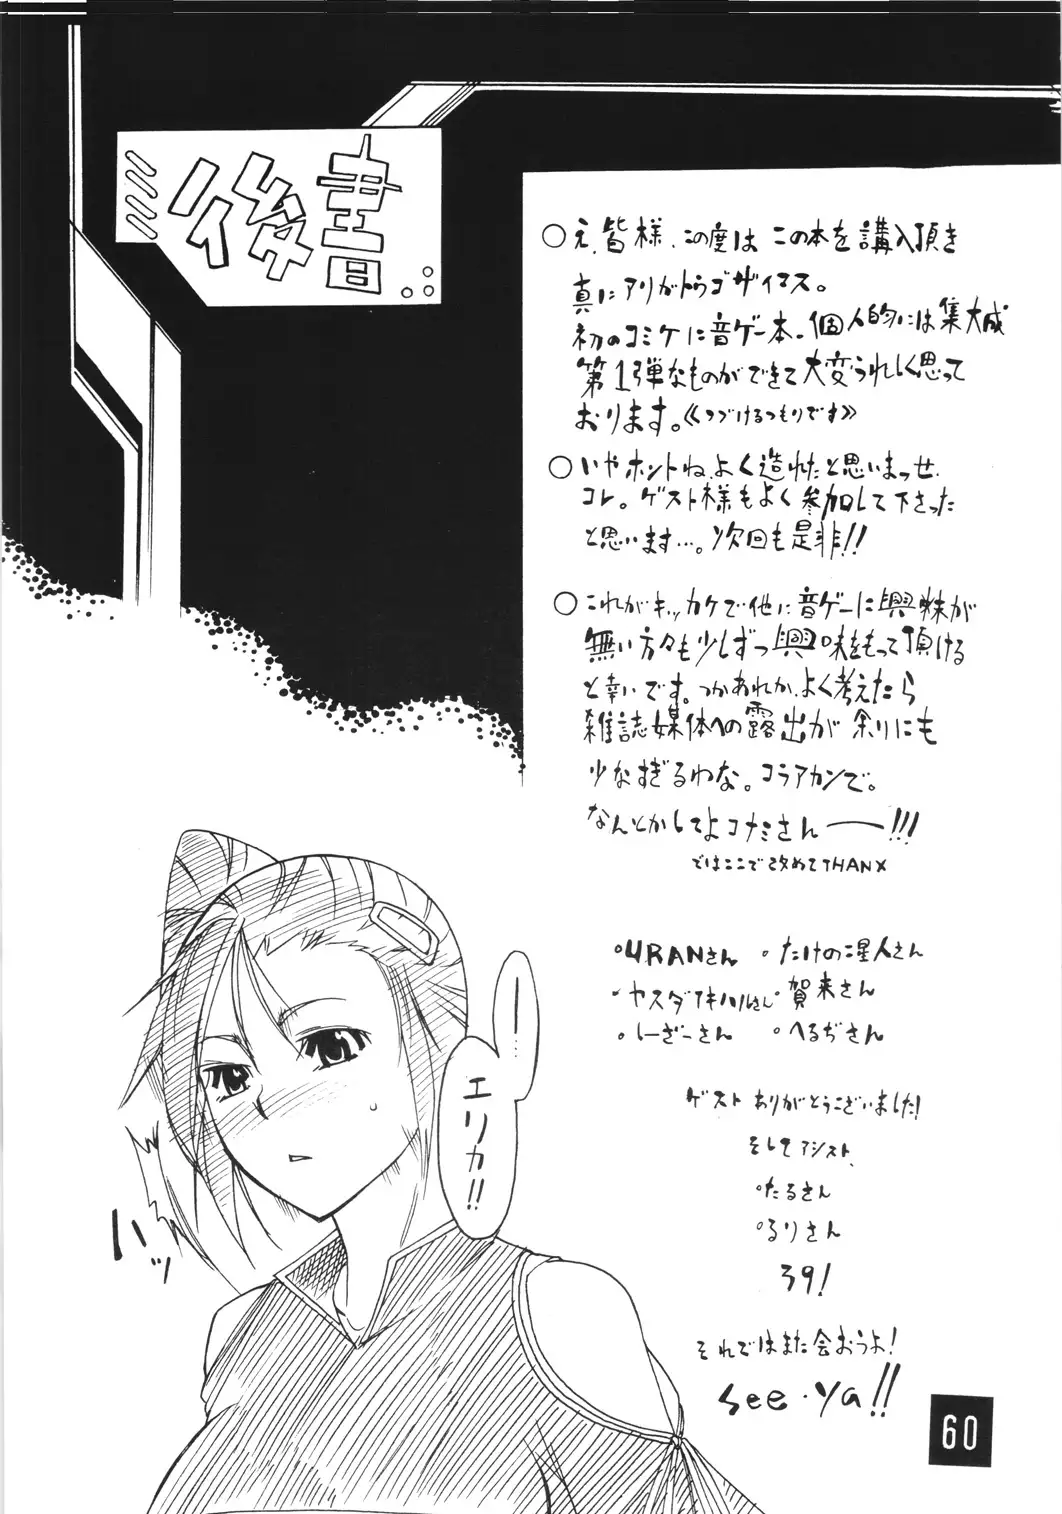 後書
○え、皆様、この度は この本を講入頂き
真にアリがトウゴザイマス。
初のコミケに音ゲー本、個人的には集大成
第1弾なものができて大変うれしく思って
おります。《つづけるつもりです》
○いやホントね、よく造れたと思いまっせ、
コレ。ゲスト様もよく参加して下さった
と思います…。次回も是非!!
○これがキッカケで他に音ゲーに興味が
無い方々も少しずつ興味をもって頂ける
と幸いです。つかあれか、よく考えたら
雑誌媒体への露出が余りにも
少なすぎるわな。コラアカンで。
なんとかしてよコナミさんー!!!
ではここで改めてTHANX
・URANさん ・たけの子星人さん
・ヤスダアキハルさん ・賀来さん
・しーざーさん ・へるぢさん
ゲスト ありがとうございました!
そしてアシスト、
・たるさん
・るりさん
39!
それではまた会おうよ!
see・ya!!
ー
エリカ!!
ハッ
60